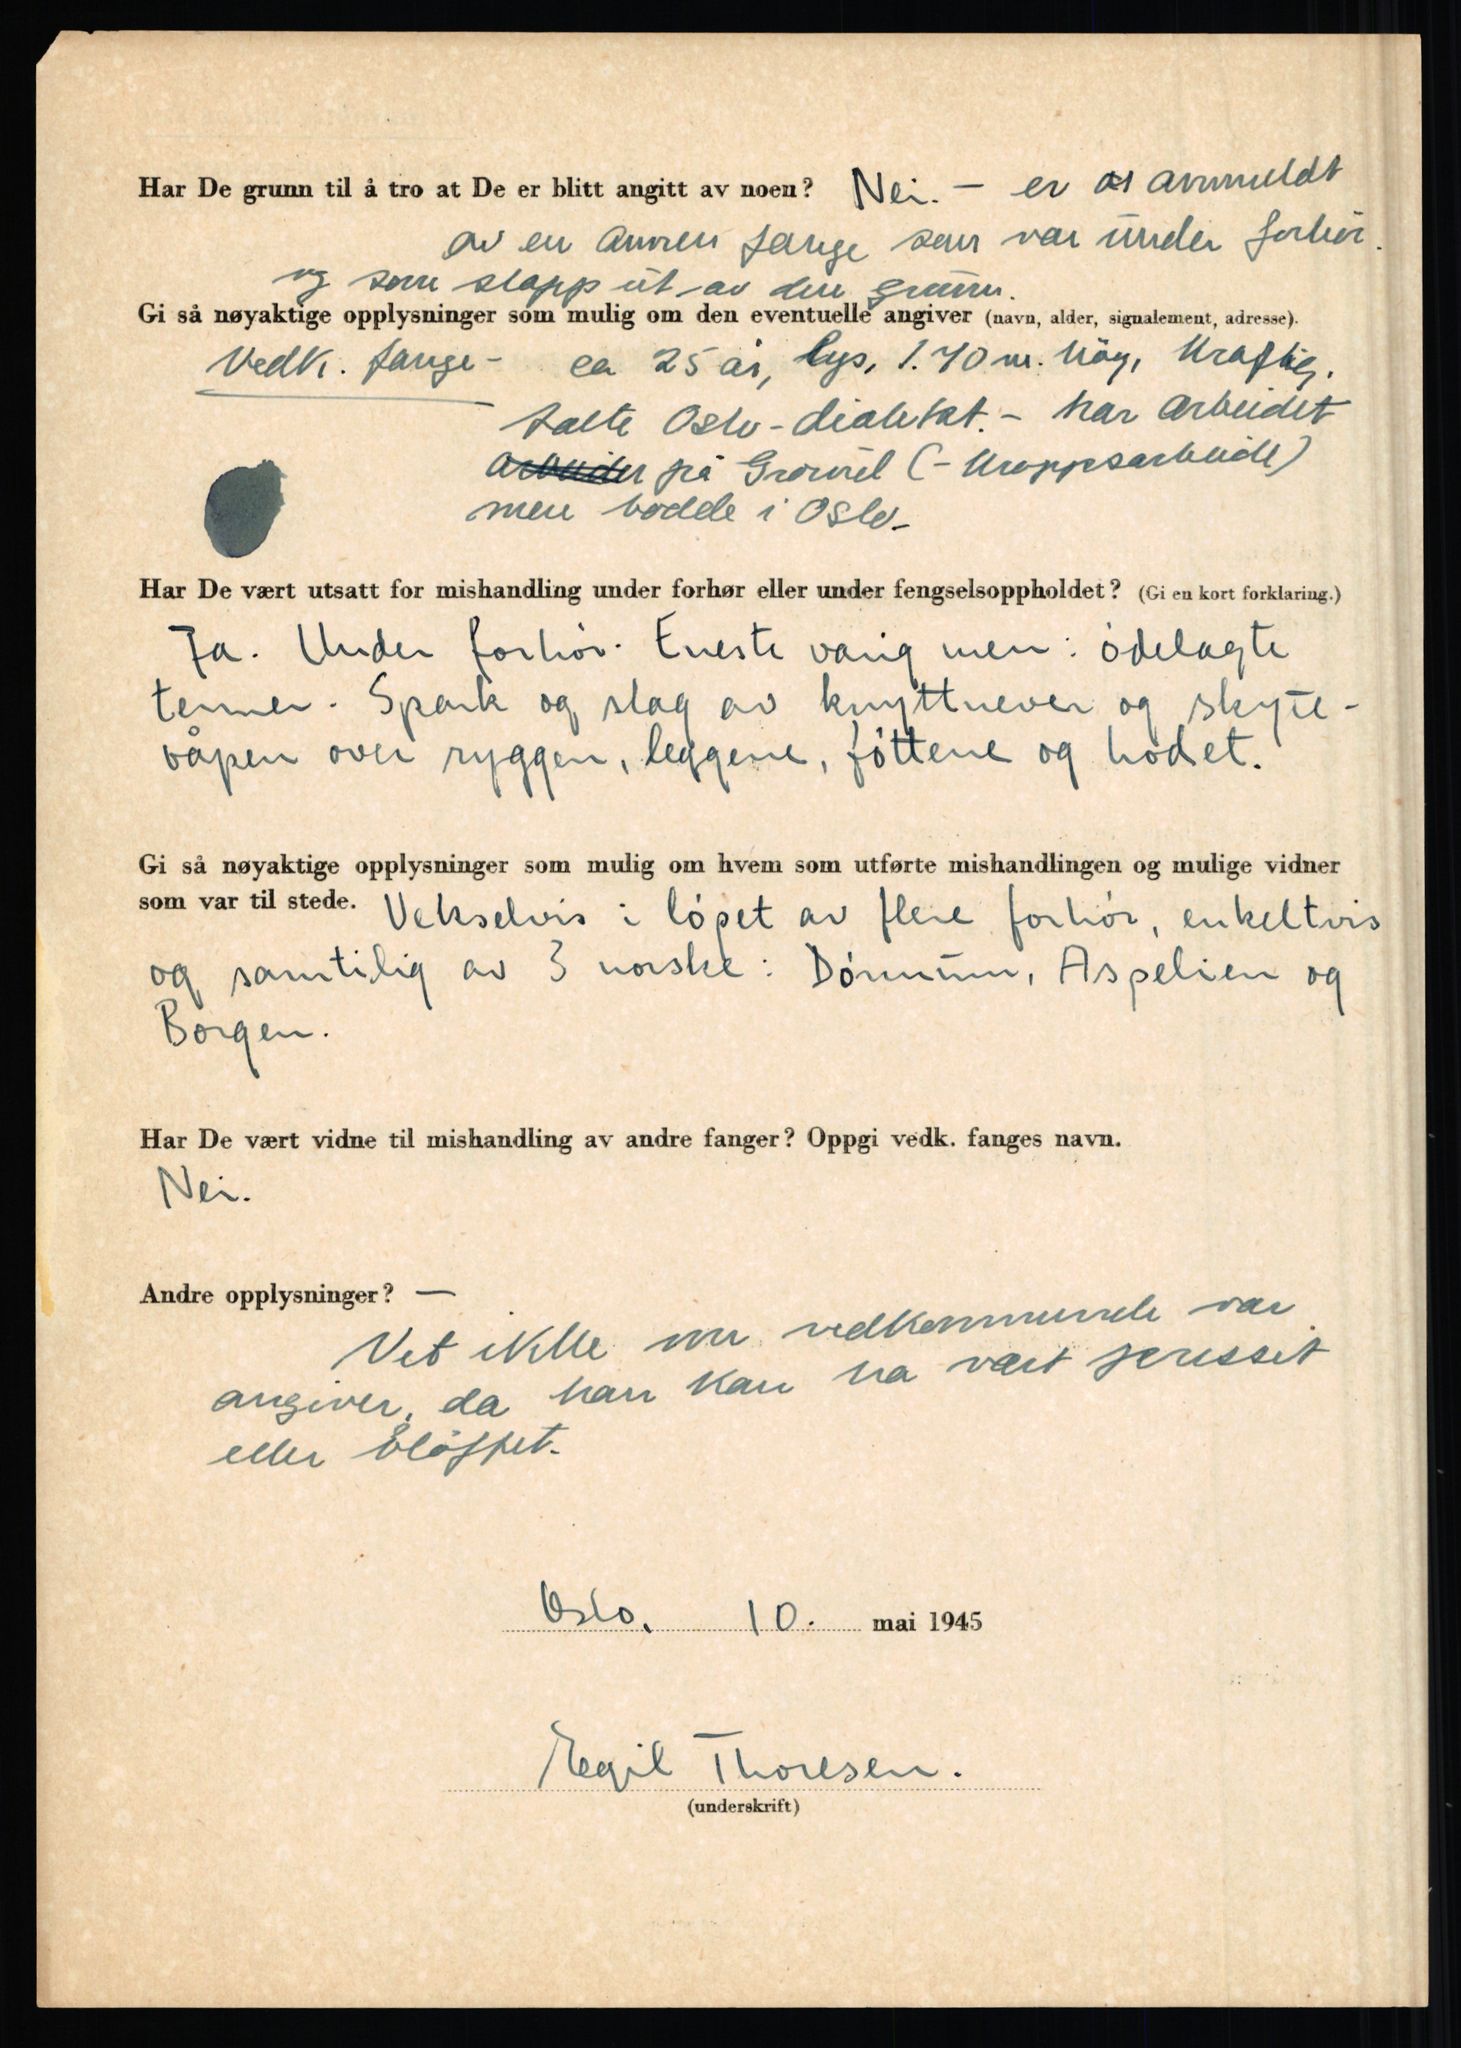 Har De grunn til å tro at De er blitt angitt av noen? Nei. — er anmeldt
av en annen fange som var under forhör.
og som slapp ut av den grunn.
Gi så nøyaktige opplysninger som mulig om den eventuelle angiver (navn, alder, signalement, adresse).
Vedk. fange - ca 25 år, lys, 1.70 m. høy, kraftig,
talte Oslo-dialekt. - har arbeidet
arbeider på Grorud (- kroppsarbeide)
men bodde i Oslo -
Har De vært utsatt for mishandling under forhør eller under fengselsoppholdet? (Gi en kort forklaring.)
Ja. Under forhør. Eneste varig men: ødelagte
tenner. Spark og slag av knyttnever og skyte-
våpen over ryggen, leggene, føttene og hodet.
Gi så nøyaktige opplysninger som mulig om hvem som utførte mishandlingen og mulige vidner
som var til stede. Vekselvis i løpet av flere forhør, enkeltvis
og samtilig av 3 norske: Dønnum, Aspelien og
Borgen.
Har De vært vidne til mishandling av andre fanger? Oppgi vedk. fanges navn.
Nei.
Andre opplysninger? —
Vet ikke om vedkommende var
angiver, da han kan ha vært presset
eller bløffet.
Oslo, 10. mai 1945
Egil Thoresen.
(underskrift)